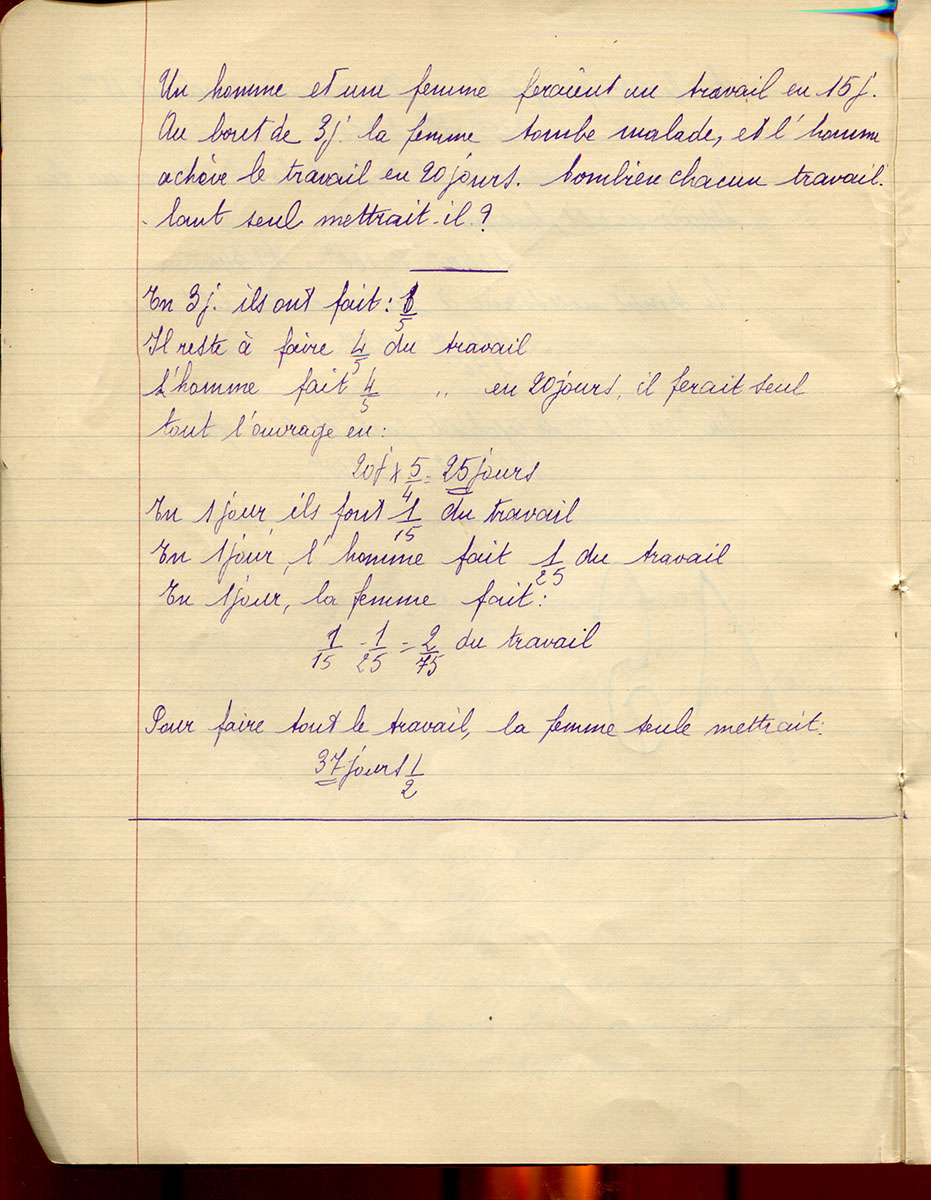 Un homme et une femme feraient un travail en 15 j.
Au bout de 3 j. la femme tombe malade, et l'homme
achève le travail en 20 jours. Combien chacun travail-
-lant seul mettrait-il ?
En 3 j. ils ont fait : 1/5
Il reste à faire 4/5 du travail
L'homme fait 4/5 " en 20 jours, il ferait seul
tout l'ouvrage en :
20 j x 5/4 = 25 jours
En 1 jour ils font 1/15 du travail
En 1 jour, l'homme fait 1/25 du travail
En 1 jour, la femme fait :
1/15 - 1/25 = 2/75 du travail
Pour faire tout le travail, la femme seule mettrait :
37 jours 1/2